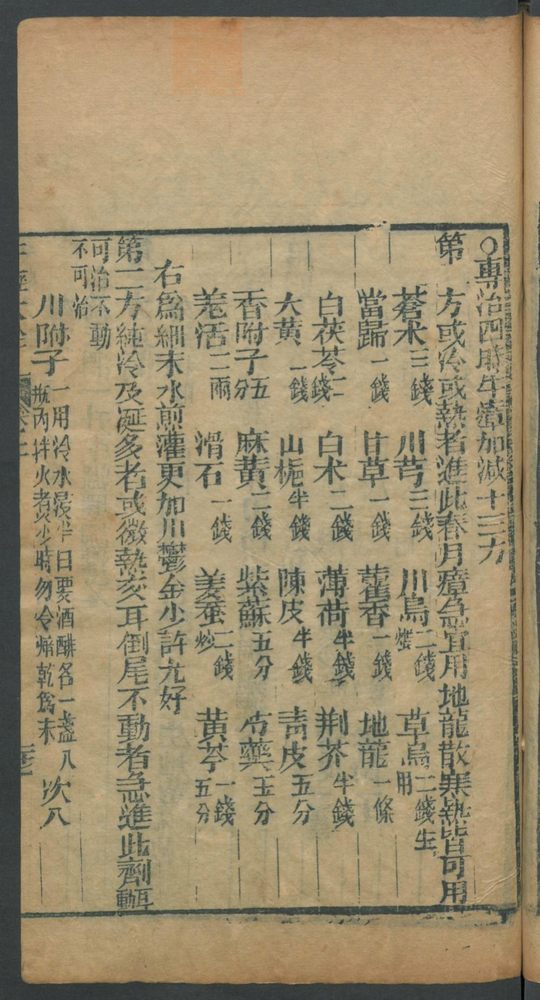 ○專治四時牛瘴加減十三方
第一方或冷或熱者進此春月瘴急宜用地龍散寒熱皆可用
蒼朮三錢 川芎三錢 川烏二錢炒 草烏二錢生用
當歸一錢 甘草一錢 藿香一錢 地龍一條
白茯苓二錢 白朮二錢 薄荷半錢 荆芥半錢
大黃一錢 山梔半錢 陳皮半錢 青皮五分
香附子五分 麻黃二錢 紫蘇五分 芍藥五分
羗活二兩 滑石一錢 姜蚕二錢炒 黃芩一錢五分
右爲細末水煎灌更加川鬱金少許尤好
第二方純冷及涎多者或微熱亥耳倒尾不動者急進此劑輕
可治不動
不可治
川附子一用冷水浸半日要酒醋各一盞入
瓶內拌火煮少時勿令焦乾爲末 次入